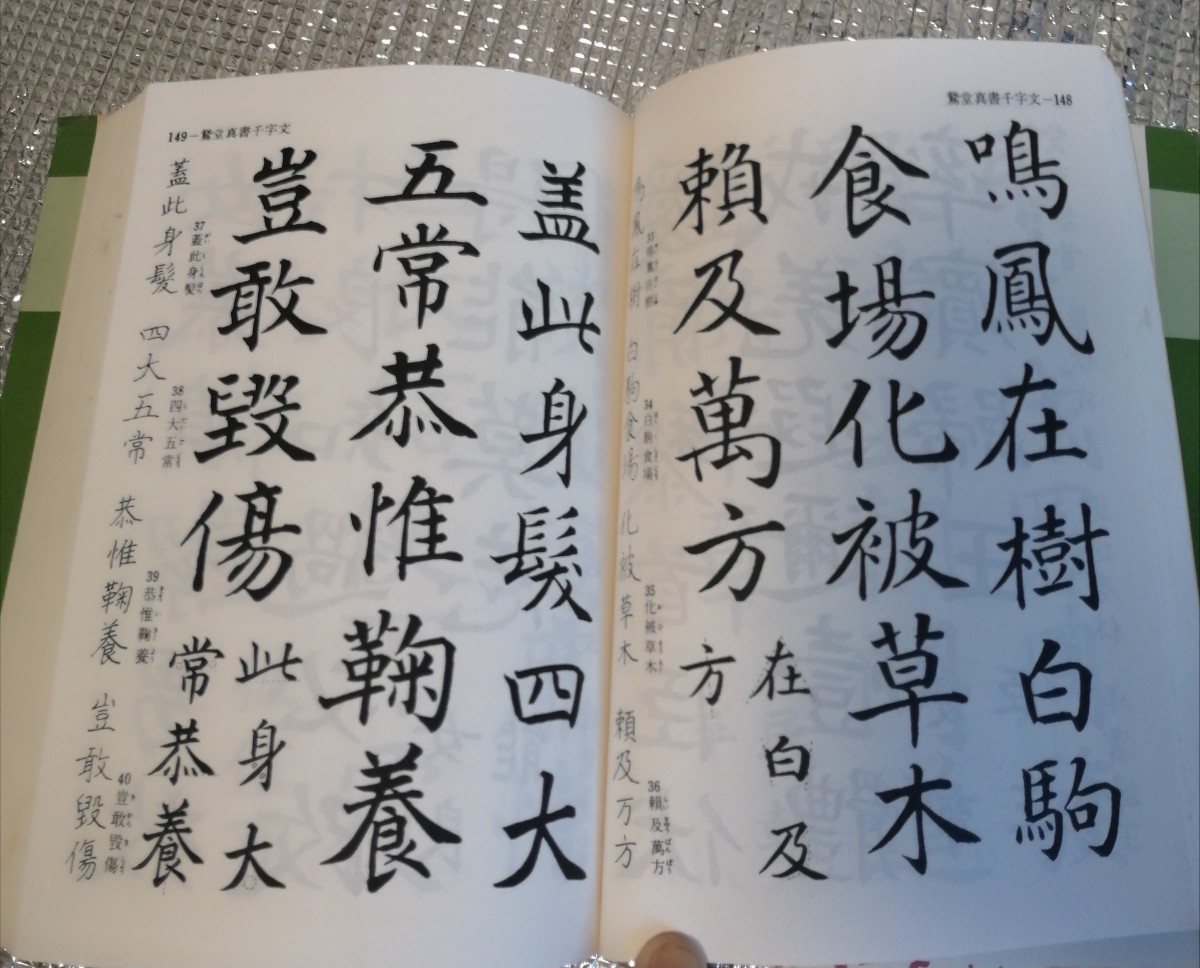 鵞堂真書千字文－148
鳴鳳在樹白駒
食場化被草木
賴及萬方
在白及
方
33
34 白駒食場
化被草木
35 化被草木
賴及万方
36 賴及萬方
149－鵞堂真書千字文
盖此身髮四大
五常恭惟鞠養
豈敢毀傷
此身大
常恭養
蓋此身髮
37 蓋此身髮
四大五常
38 四大五常
恭惟鞠養
39 恭惟鞠養
豈敢毀傷
40 豈敢毀傷